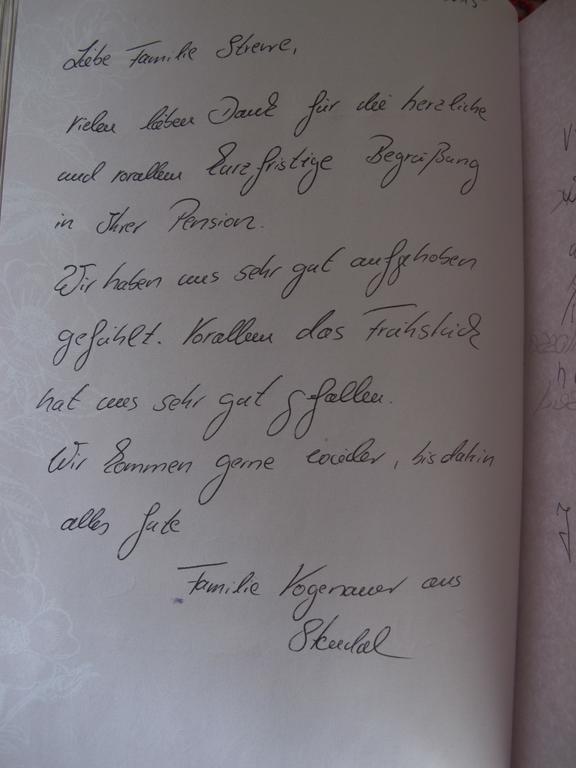 Liebe Familie Strewe,
vielen lieben Dank für die herzliche
und vorallem kurzfristige Begrüßung
in Ihrer Pension.
Wir haben uns sehr gut aufgehoben
gefühlt. Vorallem das Frühstück
hat uns sehr gut gefallen.
Wir kommen gerne wieder, bis dahin
alles Gute
Familie Vogenauer aus
Stendal